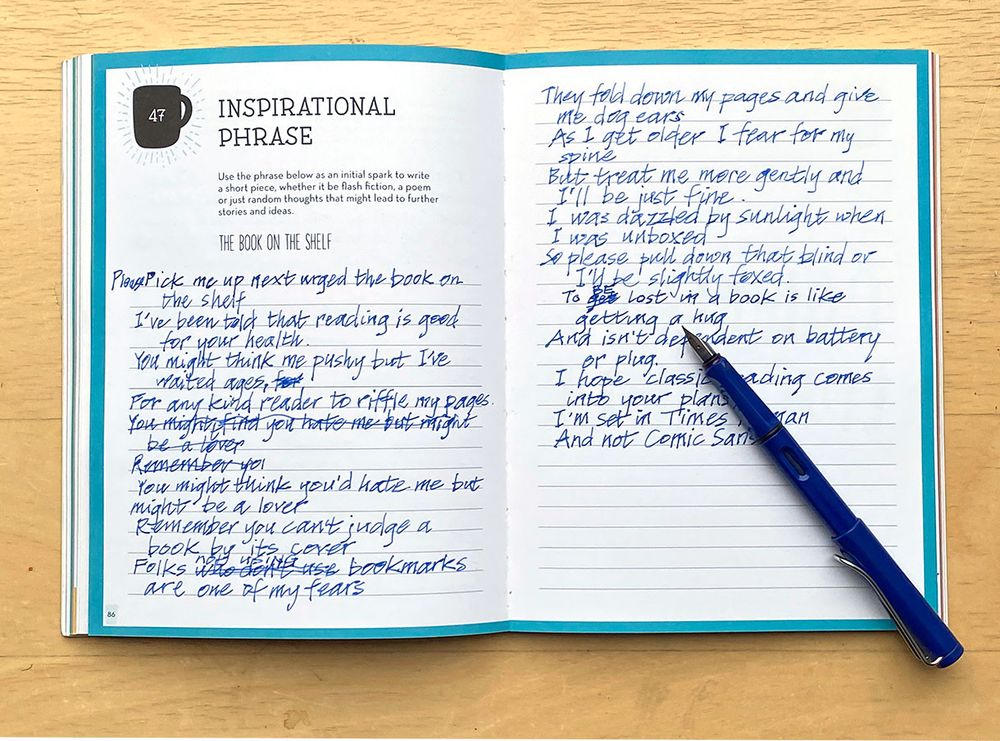 47
INSPIRATIONAL
PHRASE
Use the phrase below as an initial spark to write
a short piece, whether it be flash fiction, a poem
or just random thoughts that might lead to further
stories and ideas.
THE BOOK ON THE SHELF
Please Pick me up next urged the book on
the shelf
I've been told that reading is good
for your health.
You might think me pushy but I've
waited ages, for
For any kind reader to riffle my pages.
You might find you hate me but might
be a lover
Remember you
You might think you'd hate me but
might be a lover
Remember you can't judge a
book by its cover
not using
Folks who don't use bookmarks
are one of my fears
86
They fold down my pages and give
me dog ears
As I get older I fear for my
spine
But treat me more gently and
I'll be just fine.
I was dazzled by sunlight when
I was unboxed
So please pull down that blind or
I'll be slightly foxed.
BE
To get lost in a book is like
getting a hug
And isn't dependent on battery
or plug.
I hope 'classic' reading comes
into your plans
I'm set in Times Roman
And not Comic Sans